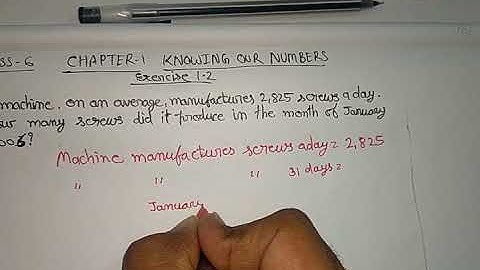 SS-6 CHAPTER-1 KNOWING OUR NUMBERS
Exercise 1.2
machine, on an average, manufactures 2,825 screws a day.
ow many screws did it produce in the month of January
006?
Machine manufactures screws a day = 2,825
" " " 31 days =
January